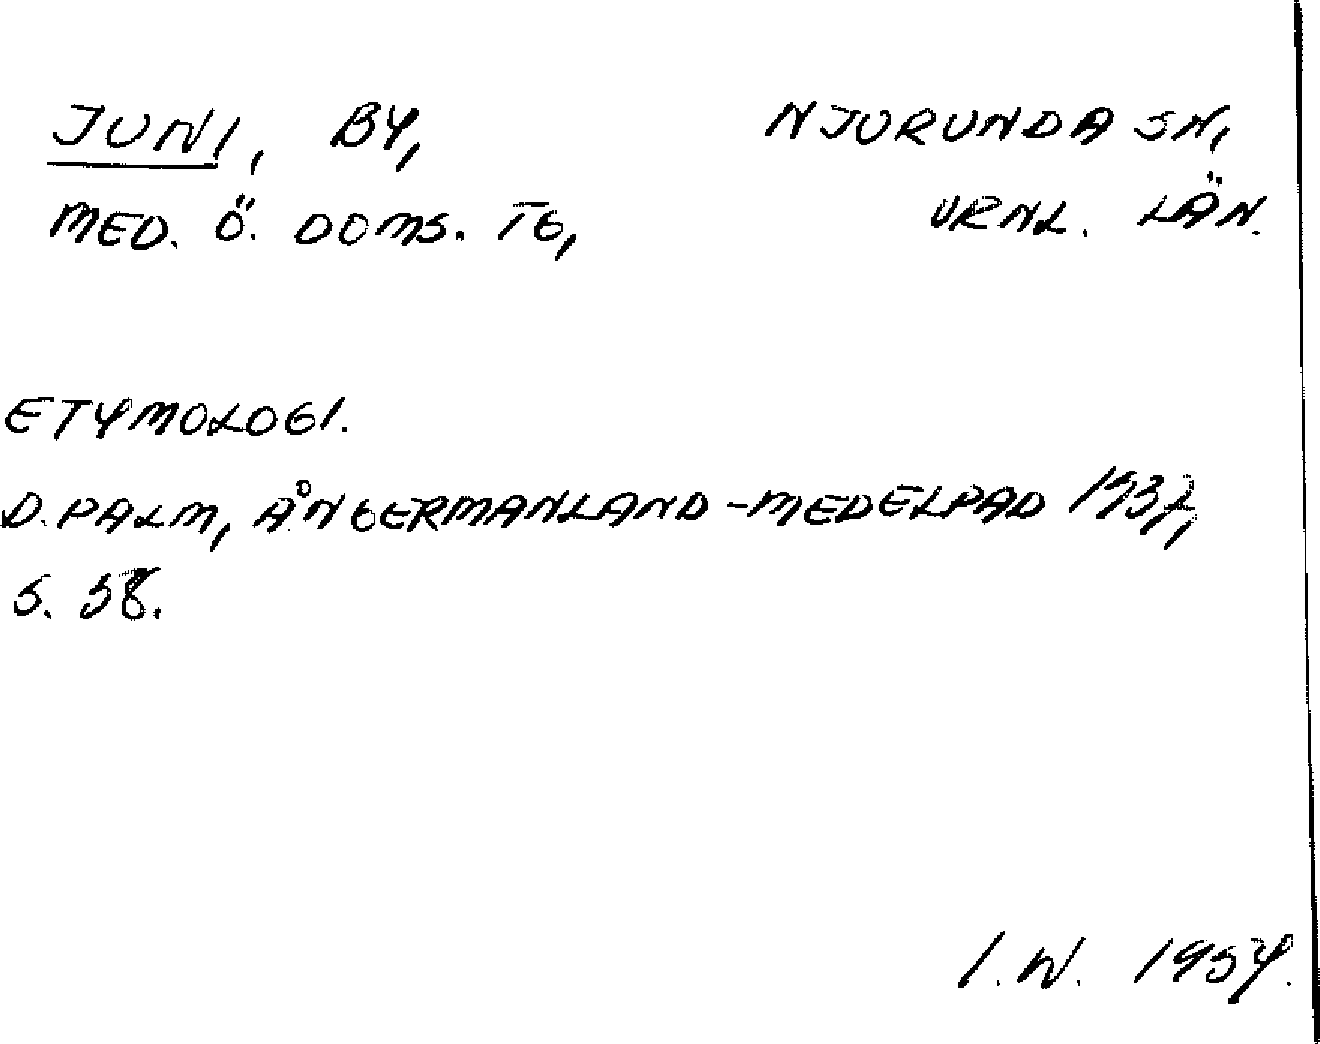 JUNI, BY, NJURUNDA SN,
MED. Ö. DOMS. TG, VRNL. LÄN.
ETYMOLOGI.
D. PALM, ÅNGERMANLAND - MEDELPAD 1937,
S. 38.
I.W. 1954.